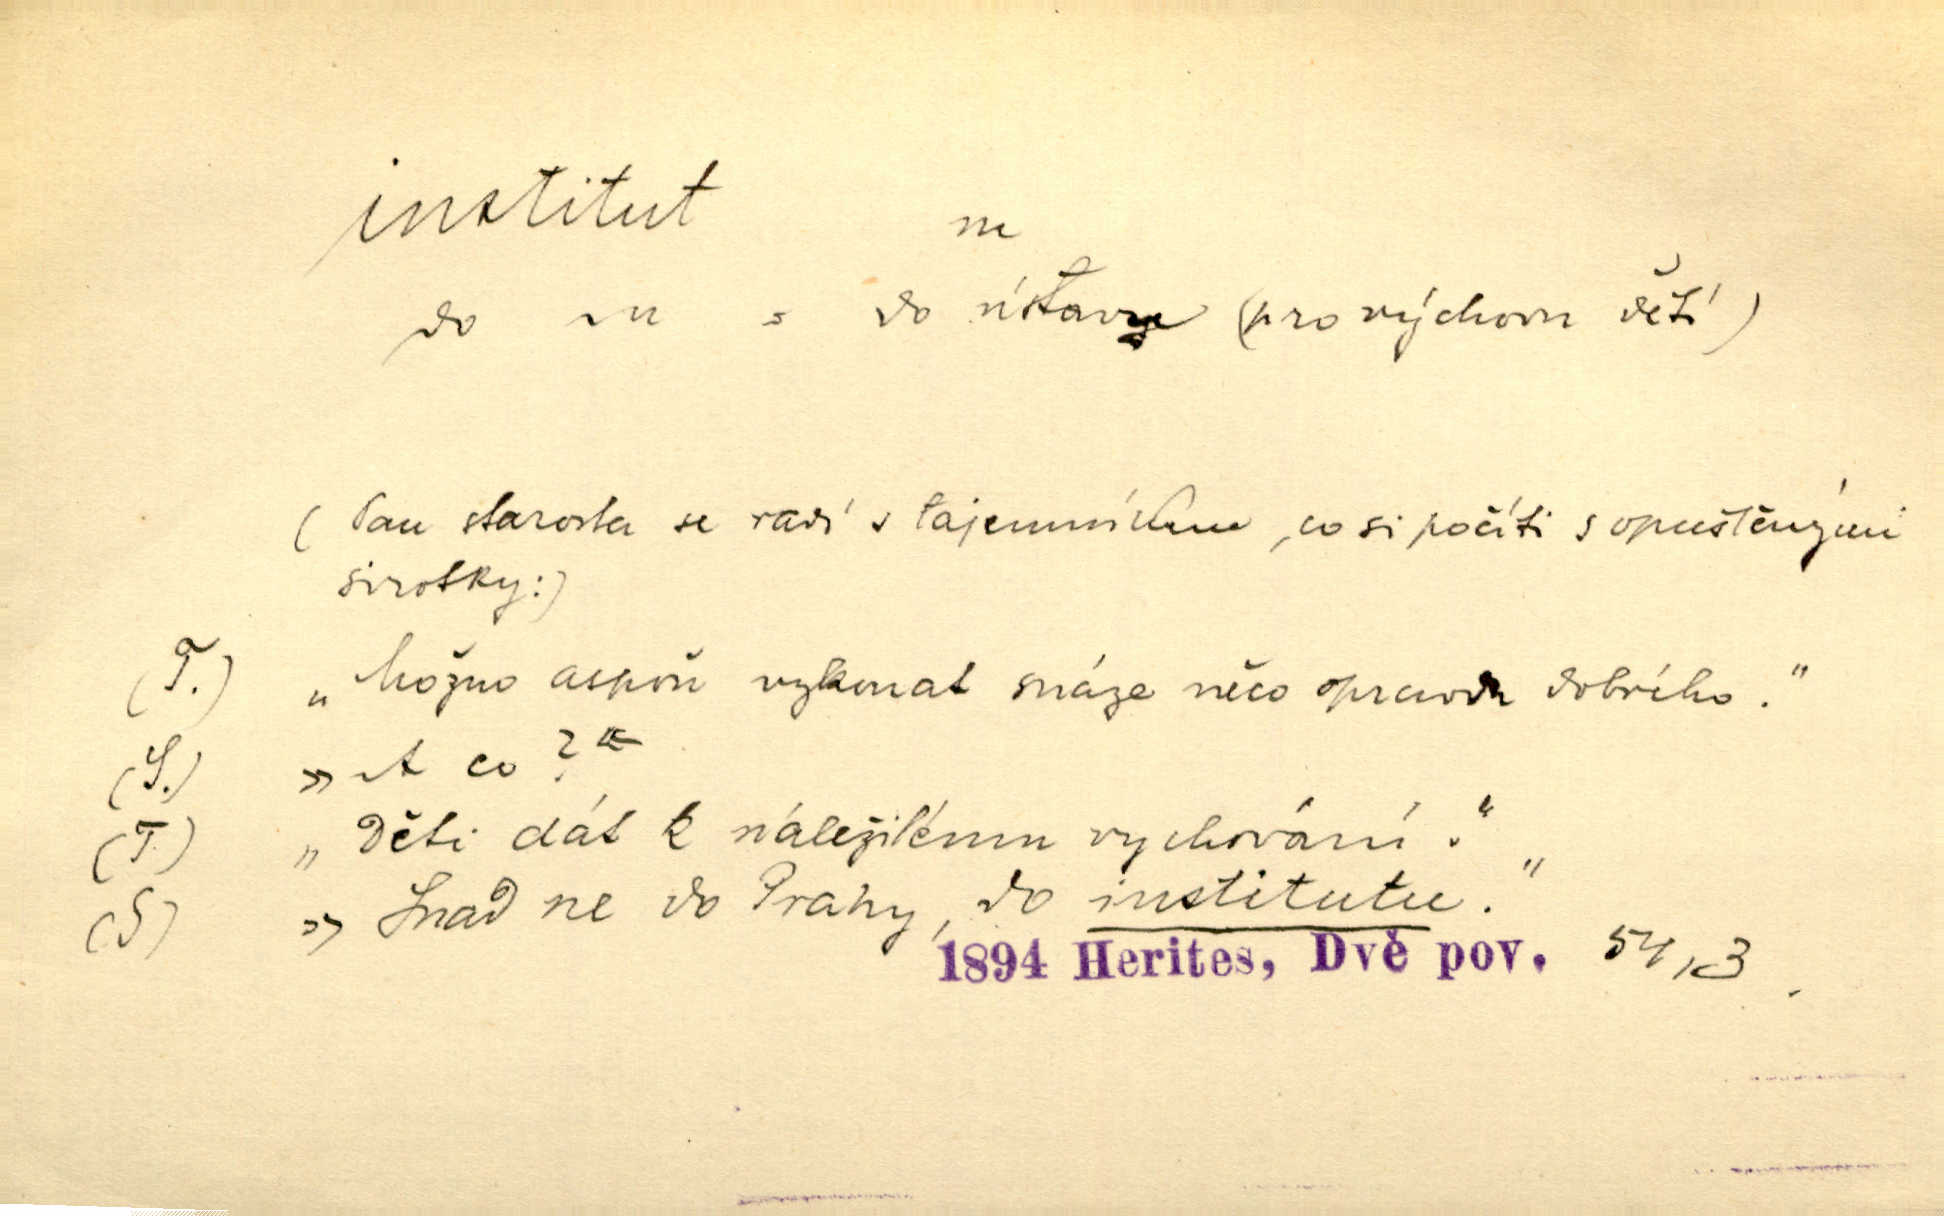 institut m
do ~ u = do ústavu (pro výchovu dětí)
(Pan starosta se radí s tajemníkem, co si počíti s opuštěnými
sirotky:)
(T.) „Možno aspoň vykonat snáze něco opravdu dobrého."
(S.) „A co?"
(T) „Děti dát k náležitému vychování."
(S) „Snad ne do Prahy, do institutu."
1894 Herites, Dvě pov. 54,3